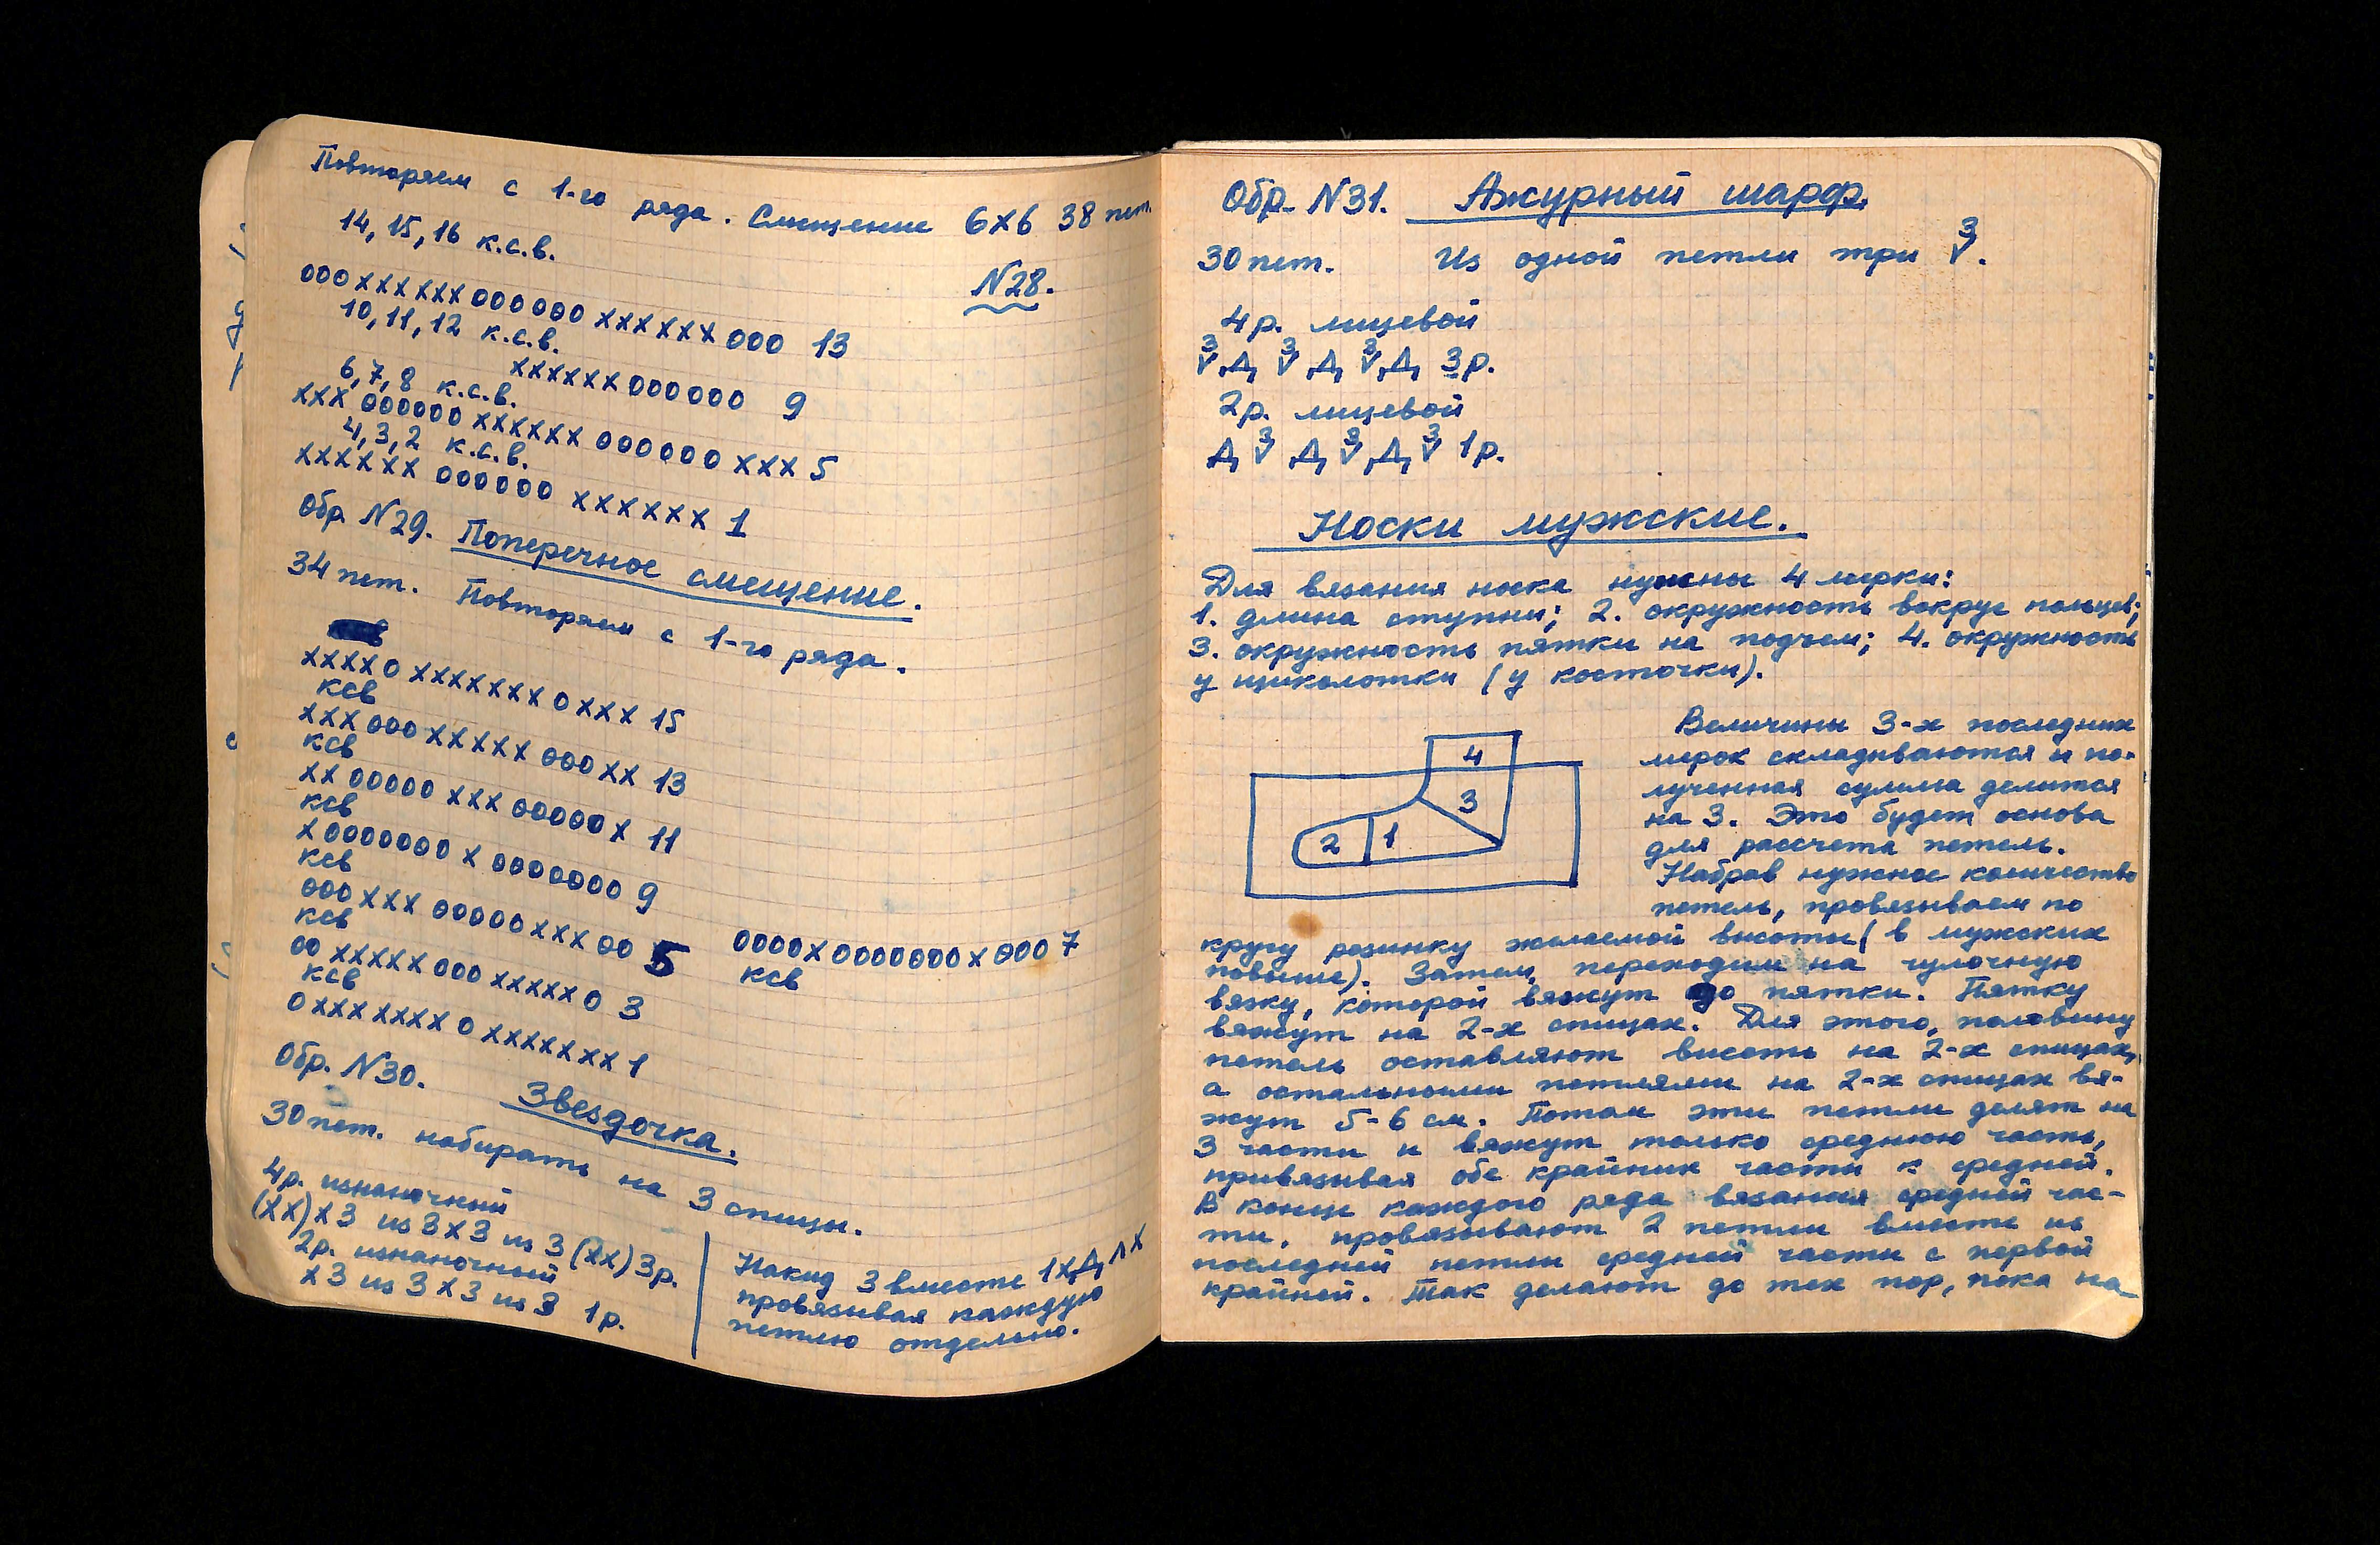 Повторяем с 1-го ряда. Смещение 6х6 38 пет.
14, 15, 16 к.с.в.
N28.
000хххххх000000 хххххх 000 13
10, 11, 12 к.с.в.
хххххх000000 9
6, 7, 8 к.с.в.
ххх 000000 хххххх 000000 ххх 5
4, 3, 2 к.с.в.
хххххх 000000 хххххх 1
Обр. N29. Поперечное смещение.
34 пет. Повторяем с 1-го ряда.
хххх0 ххххххх 0ххх 15
ксв
ххх000 ххххх 000хх 13
ксв
хх 00000 ххх 00000х 11
ксв
х0000000 х 0000000 9
ксв
000ххх 00000ххх 00 5
ксв
0000х0000000х000 7
ксв
00 ххххх 000 ххххх0 3
ксв
0ххххххх 0 ххххххх 1
Обр. N30. Звездочка.
30 пет. набирать на 3 спицы.
4р. изнаночный
(хх)х3 из 3х3 из 3(хх)3р.
2р. изнаночный
х3 из 3х3 из 3 1р.
Накид 3 вместе
провязывая каждую
петлю отдельно.
Обр. N31. Ажурный шарф.
30 пет. Из одной петли три 3V.
4р. лицевой
3V Д 3V Д 3V Д 3р.
2р. лицевой
Д 3V Д 3V Д 3V 1р.
Носки мужские.
Для вязания носка нужны 4 мерки:
1. длина ступни; 2. окружность вокруг пальцев;
3. окружность пятки на подъем; 4. окружность
у щиколотки (у косточки).
4
3
2 1
Величины 3-х последних
мерок складываются и по-
лученная сумма делится
на 3. Это будет основа
для рассчета петель.
Набрав нужное количество
петель, провязываем по
кругу резинку желаемой высоты (в мужских
повыше). Затем, переходим на чулочную
вязку, которой вяжут до пятки. Пятку
вяжут на 2-х спицах. Для этого, половину
петель оставляют висеть на 2-х спицах,
а остальными петлями на 2-х спицах вя-
жут 5-6 см. Потом эти петли делят на
3 части и вяжут только среднюю часть,
привязывая обе крайние части к средней.
В конце каждого ряда вязания средней час-
ти, провязывают 2 петли вместе из
последней петли средней части с первой
крайней. Так делают до тех пор, пока на